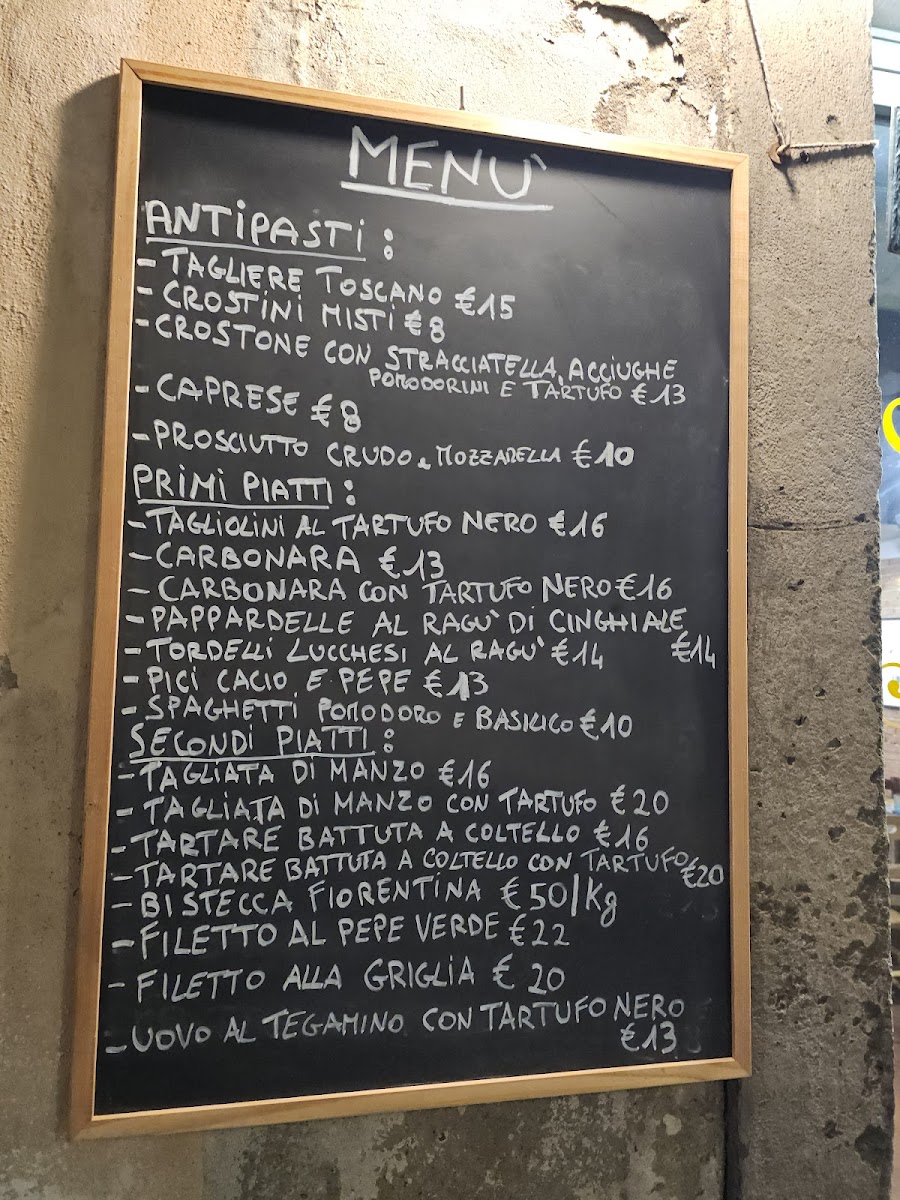 MENU'
ANTIPASTI:
- TAGLIERE TOSCANO €15
- CROSTINI MISTI €8
- CROSTONE CON STRACCIATELLA, ACCIUGHE
POMODORINI E TARTUFO €13
- CAPRESE €8
- PROSCIUTTO CRUDO e MOZZARELLA €10
PRIMI PIATTI:
- TAGLIOLINI AL TARTUFO NERO €16
- CARBONARA €13
- CARBONARA CON TARTUFO NERO €16
- PAPPARDELLE AL RAGU' DI CINGHIALE
€14
- TORDELLI LUCCHESI AL RAGU' €14
- PICI CACIO E PEPE €13
- SPAGHETTI POMODORO E BASILICO €10
SECONDI PIATTI:
- TAGLIATA DI MANZO €16
- TAGLIATA DI MANZO CON TARTUFO €20
- TARTARE BATTUTA A COLTELLO €16
- TARTARE BATTUTA A COLTELLO CON TARTUFO €20
- BISTECCA FIORENTINA €50/Kg
- FILETTO AL PEPE VERDE €22
- FILETTO ALLA GRIGLIA €20
- UOVO AL TEGAMINO CON TARTUFO NERO
€13